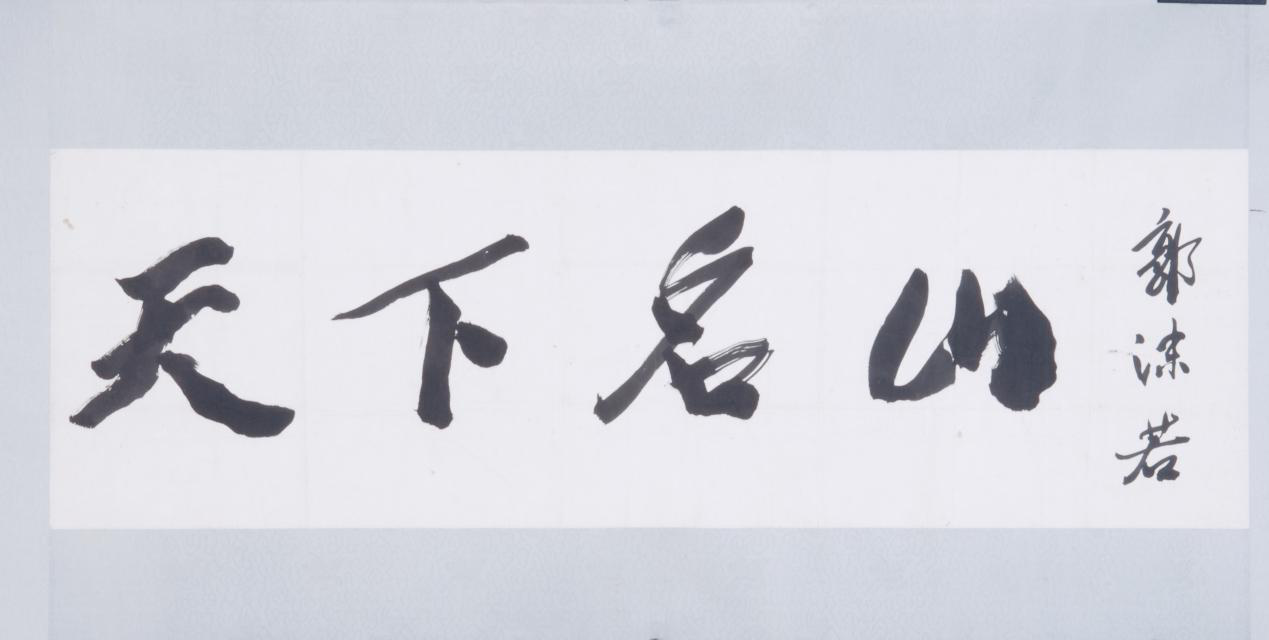 天下名山
郭沫若